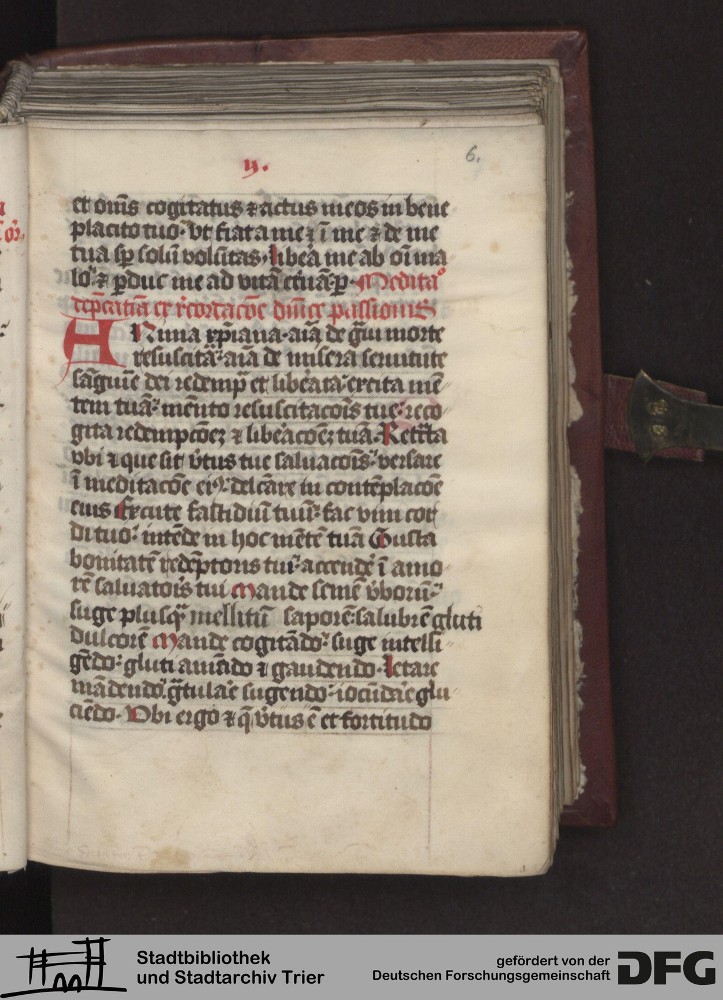 ij.
6.
et om̄s cogitatus ⁊ actus meos in bene
placito tuo· vt fiat a me ⁊ ī me ⁊ de me
tua sp̄ solū volūtas· libea̓ me ab oı̄ ma
lo· ⁊ ꝑduc me ad vitā et̓nā· ꝑ· Medita°
dep̄catiā ex r̓cordac̄oe dn̄ice passionis
ANima xp̄iana· aīa de g̓ui morte
resuscita̓· aīa de misera seruitute
sāguīe dei redemp̓ et libe̓ata· excita mē
tem tuā· mem̄to resuscitac̄ois tue· reco
gita redempc̄oeꝫ ⁊ libe̓ac̄oeꝫ tuā· Ret̓cta
vbi ⁊ que sit v̓tus tue saluac̄ois· versare
ī meditac̄oe ei⁹· delc̄are in contēplac̄oe
eius Excute fastidiū tuū· fac vim cor
di tuo· intēde in hoc mētē tuā Gusta
bonitatē redēptoris tui· accende̓ ī amo
rē saluatoı̓s tui Mande semē v̓borū·
suge plusq̄ȝ mellitū saporē· salubrē gluti
dulcorē Mande cogitādo· suge intelli
gēdo· gluti amādo ⁊ gaudendo· Letare
mādendo· g̓tulare sugendo· iocūdare glu
ciēdo· Vbi ergo ⁊ q̄ v̓tus ē et fortitudo
Stadtbibliothek
und Stadtarchiv Trier
gefördert von der
Deutschen Forschungsgemeinschaft
DFG